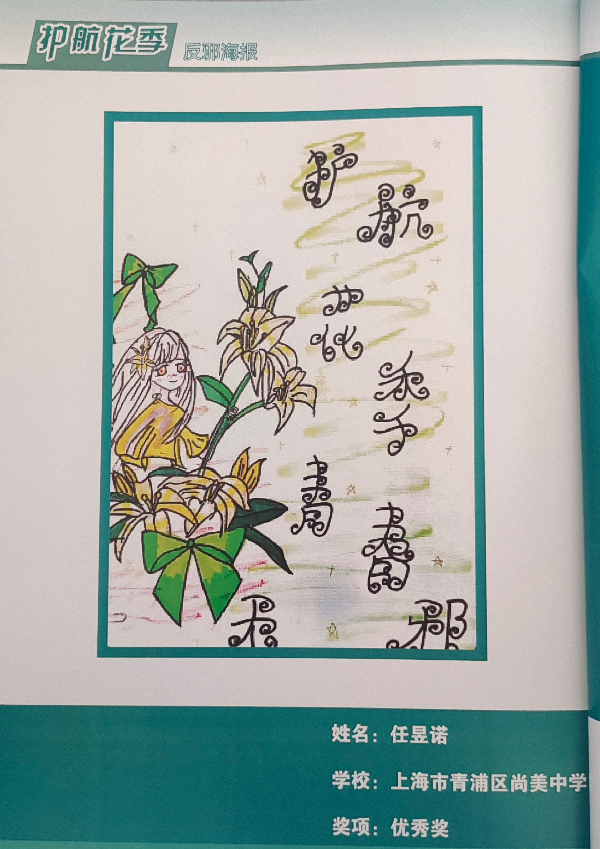 护航花季
反邪海报
护航
花季
青
邪
姓名：任昱诺
学校：上海市青浦区尚美中学
奖项：优秀奖